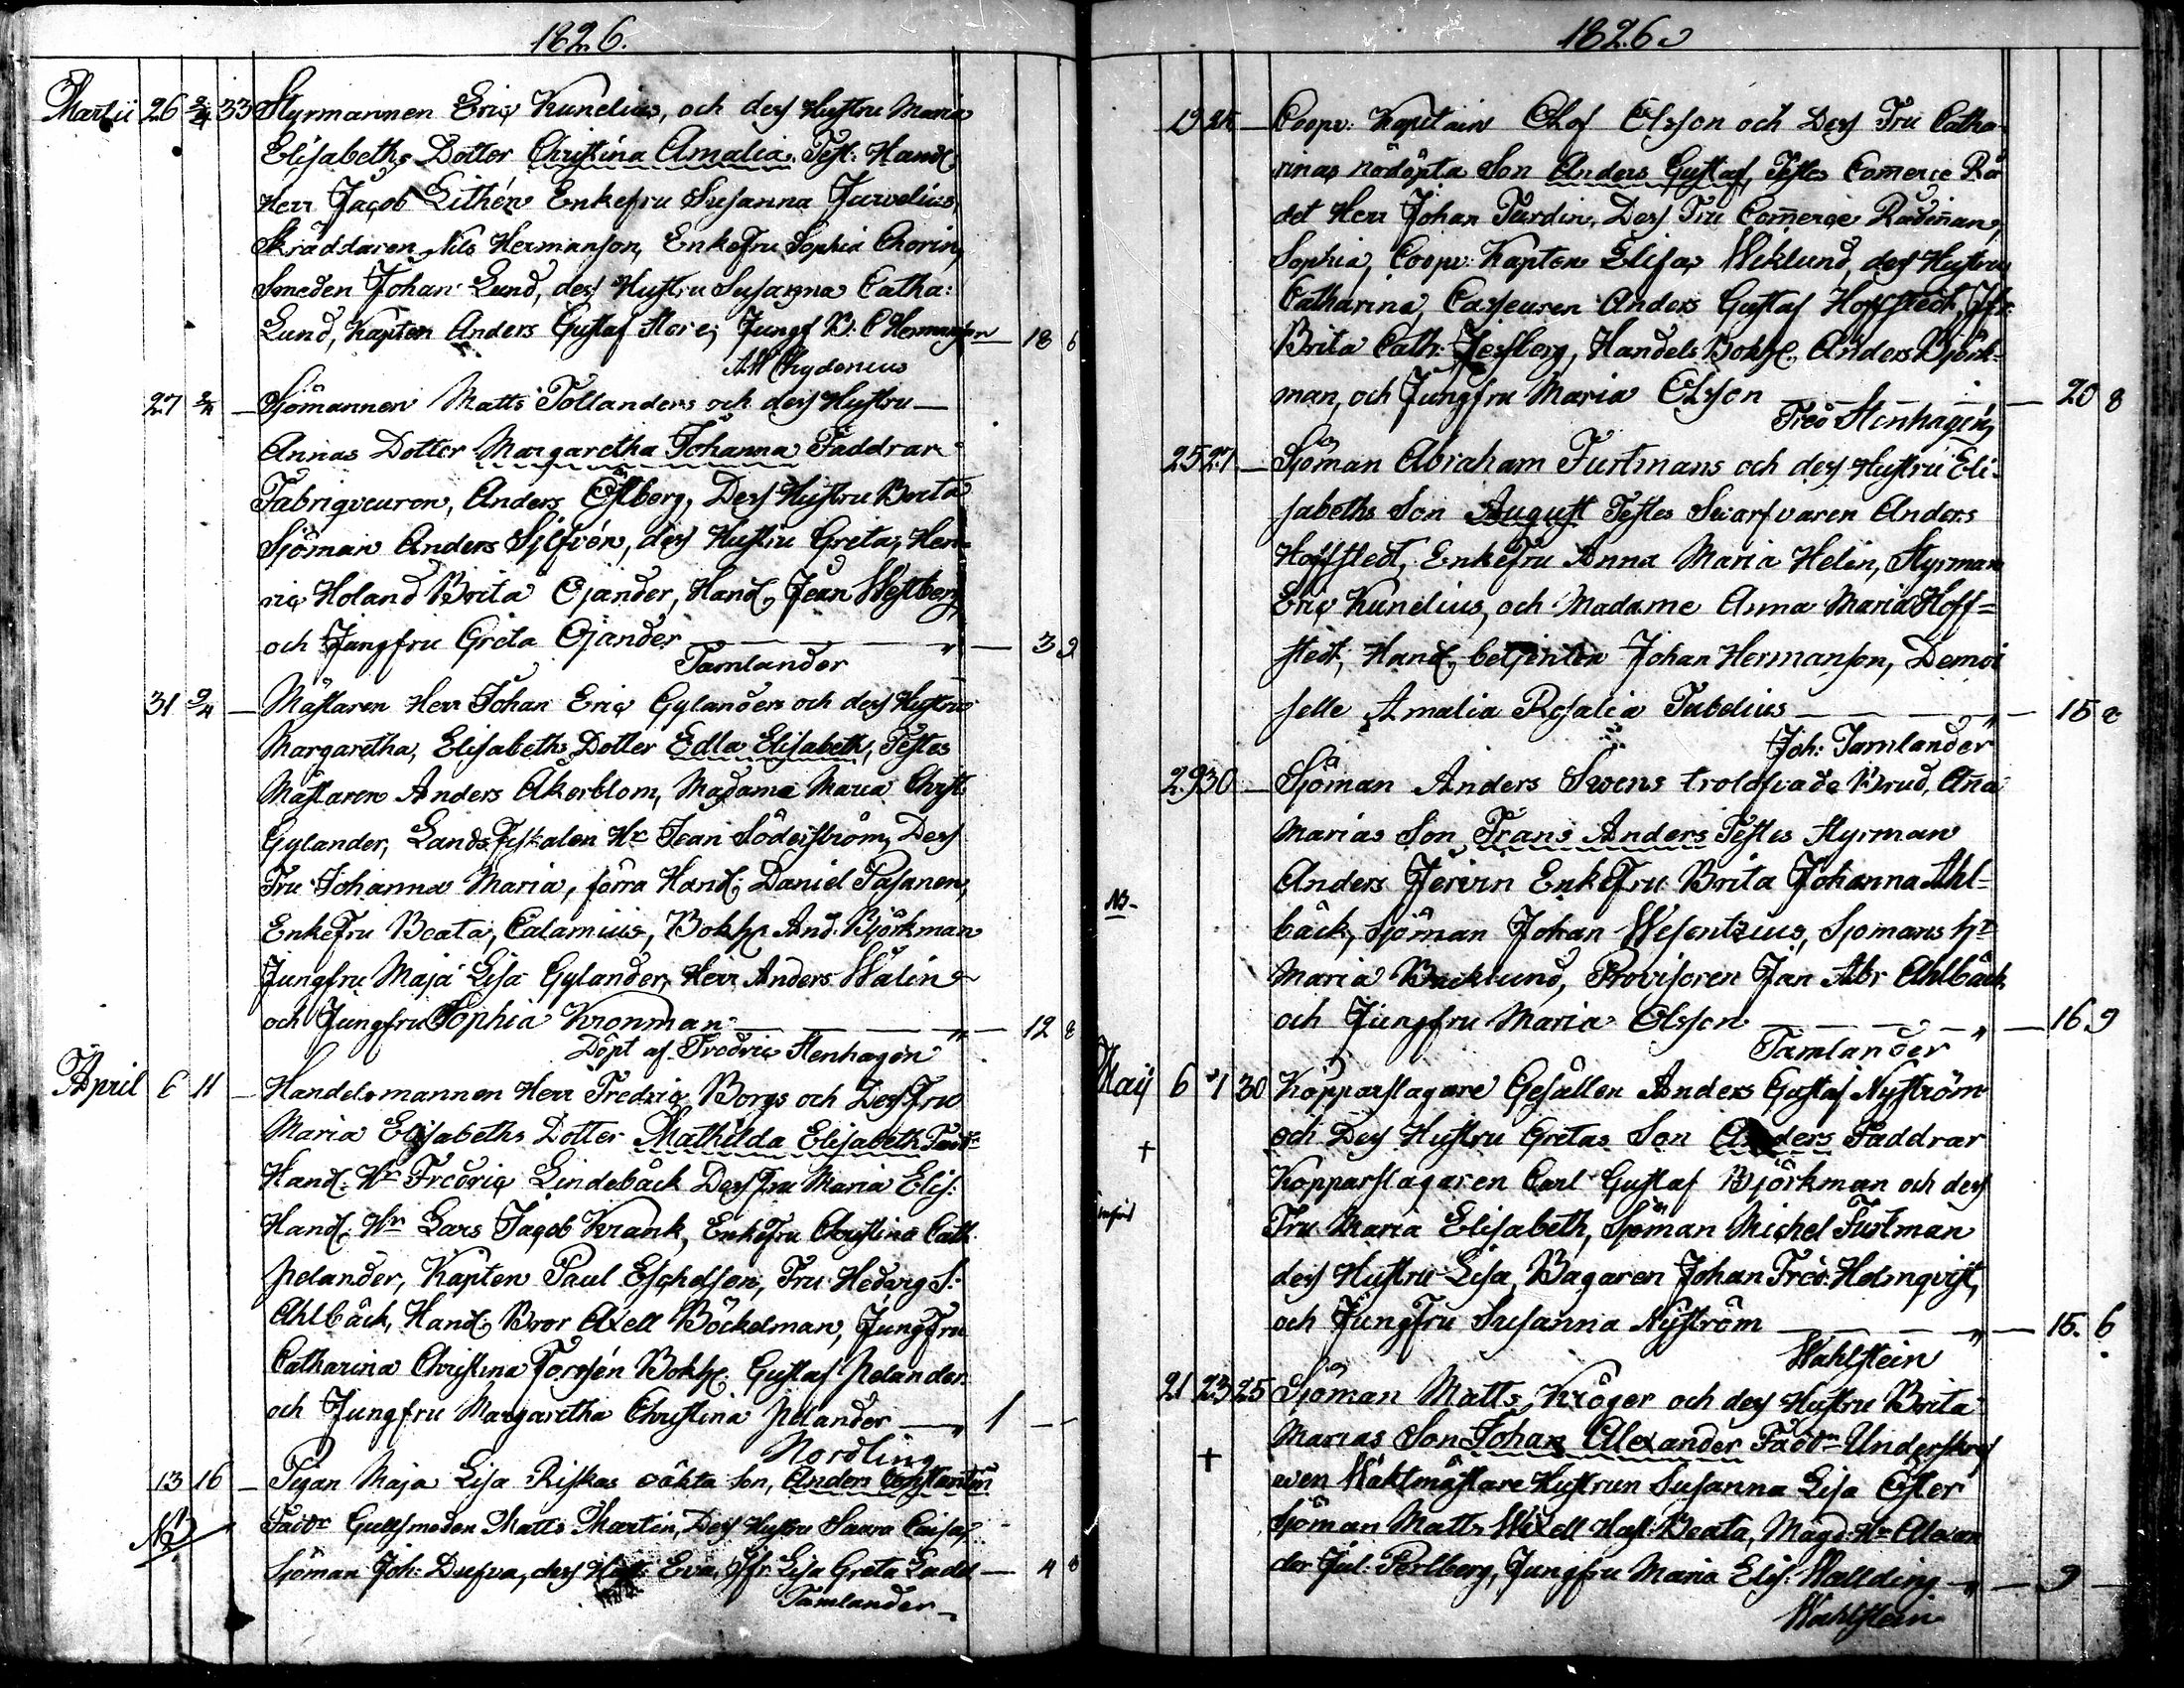 1826.
Martii 26 2/4 33 Styrmannen Eriq Kunelius, och dess Hustru Maria
Elisabeths Dotter Christina Amalia. Test: Handl:
Herr Jacob Lithén Enkefru Susanna Juvelius,
Skräddaren Nils Hermanson, EnkeFru Sophia Chorin,
Smeden Johan Lund, dess Hustru Susanna Catha:
Lund, Kapten Anders Gustaf Hore, Jungf B: C Hermanson — 18 6
AW Chydenius
27 2/4 — Sjömannen Matts Tollanders och dess Hustru —
Annas Dotter Margaretha Johanna Faddrar
Fabriqveuren, Anders Östberg, Dess Hustru Beata
Sjöman Anders Sjlfvén, dess Hustru Greta, Hen=
riq Holand Brita Ojander, Handl, Jean Westberg,
och Jungfru Greta Ojander — „ — 3 9
Tamlander
31 9/4 — Mästaren Herr Johan Eriq Gylanders och dess Hustru
Margaretha, Elisabeths Dotter Edla Elisabeth, Testes
Mästaren Anders Åkerblom, Madame Maria Christ:
Gylander, LandsFiskalen Hr Jean Söderström, Dess
Fru Johanna Maria, förra Handl: Daniel Pasanen,
EnkeFru Beata, Calamius, Bokh: And. Björkman
Jungfru Maja Lisa Gylander, Herr Anders Walin
och Jungfru Sophia Kronman — „ — 12 8
Döpt af Fredric Stenhagen
April 6 11 — Handelsmannen Herr Fredriq Borgs och Dess Fru
Maria Elisabeths Dotter Mathilda Elisabeth Faddr
Handl: Hr Fredriq Lindebäck Dess Fru Maria Elis:
Handl: Hr Lars Jagob Krank, EnkeFru Christina Cath
Pelander, Kapten Paul Eschelsen, Fru Hedvig S:
Ahlbäck, Handl: Bror Axell Böckelman, JungFru
Catharina Christina Forssén Bokh: Gustaf Pelander
och Jungfru Margaretha Christina Pelander — „ 1 —
Nordling
13 16 — Pigan Maja Lisa Riskas oäkta Son, Anders Constantin
NB Faddr Gullsmeden Matts Martin, Dess Hustru Saara Caisa,
Sjöman Joh: Dufva, dess Hust: Eva, Jfr: Lisa Greta Ladd — 4 6
Tamlander
1826.
19 24 — Coopv: Kapitain Olof Olsson och Dess Fru Catha
rinas nödöpta Son Anders Gustaf, Testes Comerce Rå
det Herr Johan Turdin, Dess Fru Comerce Rådiñan,
Sophia, Coopv: Kapten Elisas Wiklund, dess Hustru
Catharina, Casseuren Anders Gustaf Hoffstedt, Jfr:
Brita Cath: Jessberg, Handels Bokh: Anders Björk=
man, och Jungfru Maria Olsson — 20 8
Fred Stenhagen,
25 27 — Sjöman Abraham Furtmans och dess Hustru Eli-
sabeths Son August Testes Swarfvaren Anders
Hoffstedt, EnkeFru Anna Maria Helin, Styrman
Eriq Kunelius, och Madame Anna Maria Hoff=
stedt, Handl, betjenten Johan Hermanson, Demoi
selle Amalia Rosalia Tabelius — „ — 15 8
Joh: Tamlander
29 30 — Sjöman Anders Swens trolofvade Brud, Ana
Marias Son Frans Anders Testes Styrman
Anders Jervin EnkeFru Brita Johanna Ahl=
NB- bäck, Sjöman Johan Wesentzius, Sjömans Hr
Maria Backlund, Provisoren Jan Abr Ahlbäck
och Jungfru Maria Olsson — „ — 16 9
Tamlander
Maij 6 7 30 Kopparslagare Gesällen Anders Gustaf Nyström
† och Dess Hustru Gretas Son Anders Faddrar
Kopparslagaren Carl Gustaf Björkman och dess
Fru Maria Elisabeth, Sjöman Michel Furtman
dess Hustru Lisa, Bagaren Johan Fred: Holmqvist,
och JungFru Susanna Nyström — „ — 15. 6
Wahlstein
21 23 25 Sjöman Matts Kröger och dess Hustru Brita
† Marias Son Johan Alexander Faddr Underskrif
ven Waktmästare Hustrun Susanna Lisa Öster
Sjöman Matts Wixell Hust: Beata, Mag: Hr Alexan
der Jul: Perlberg, Jungfru Maria Elis: Wallding — „ — 9 —
Wahlstein